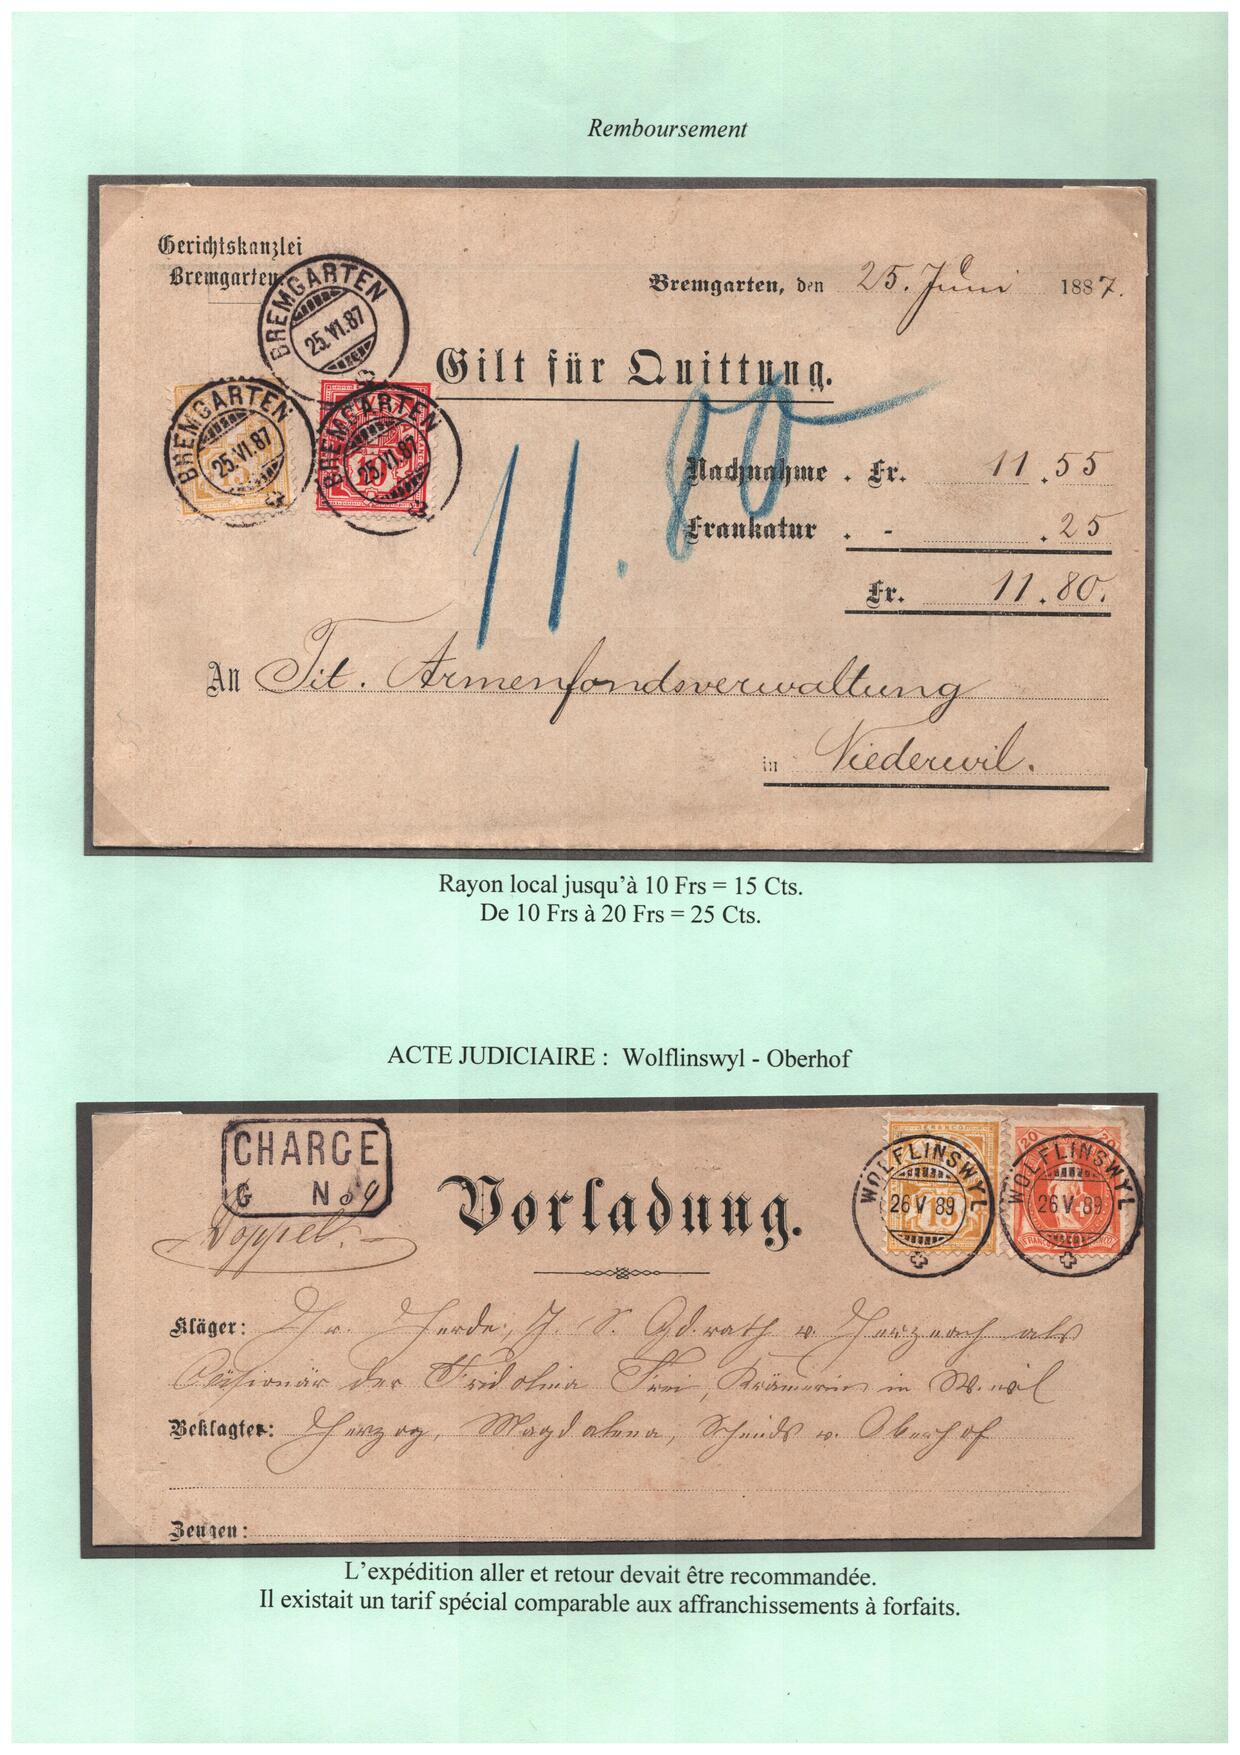 Remboursement
Gerichtskanzlei
Bremgarten.
BREMGARTEN
25.VI.87
Bremgarten, den 25. Juni 1887.
Gilt für Quittung.
BREMGARTEN
25.VI.87
15
BREMGARTEN
25.VI.87
10
11.80
Nachnahme . Fr. 11.55
Frankatur . - .25
Fr. 11.80.
An Tit. Armenfondsverwaltung
in Niederwil.
Rayon local jusqu'à 10 Frs = 15 Cts.
De 10 Frs à 20 Frs = 25 Cts.
ACTE JUDICIAIRE : Wolflinswyl - Oberhof
CHARGE
G No 9
Doppel.
Vorladung.
FRANCO
WÖLFLINSWYL
26 V 89
15
20 20
WÖLFLINSWYL
26 V 89
FRANCO
Kläger: Hr. J. S. v. Herznach als
Cessionär der Fridolina Frei, Krämerin in W.wil
Beklagter: Herzog, Magdalena, v. Oberhof
Zeugen:
L'expédition aller et retour devait être recommandée.
Il existait un tarif spécial comparable aux affranchissements à forfaits.